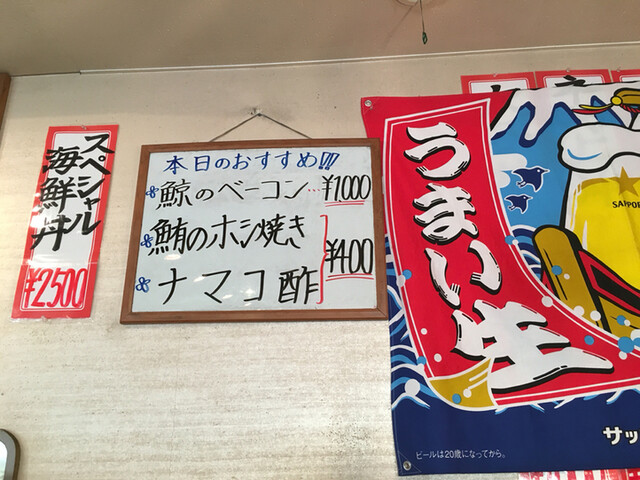 スペシャル
海鮮丼
¥2500
本日のおすすめ!!!
鯨のベーコン…¥1000
鮪のホシ焼き
ナマコ酢
¥400
うまい生
SAPPO
サッ
ビールは20歳になってから。